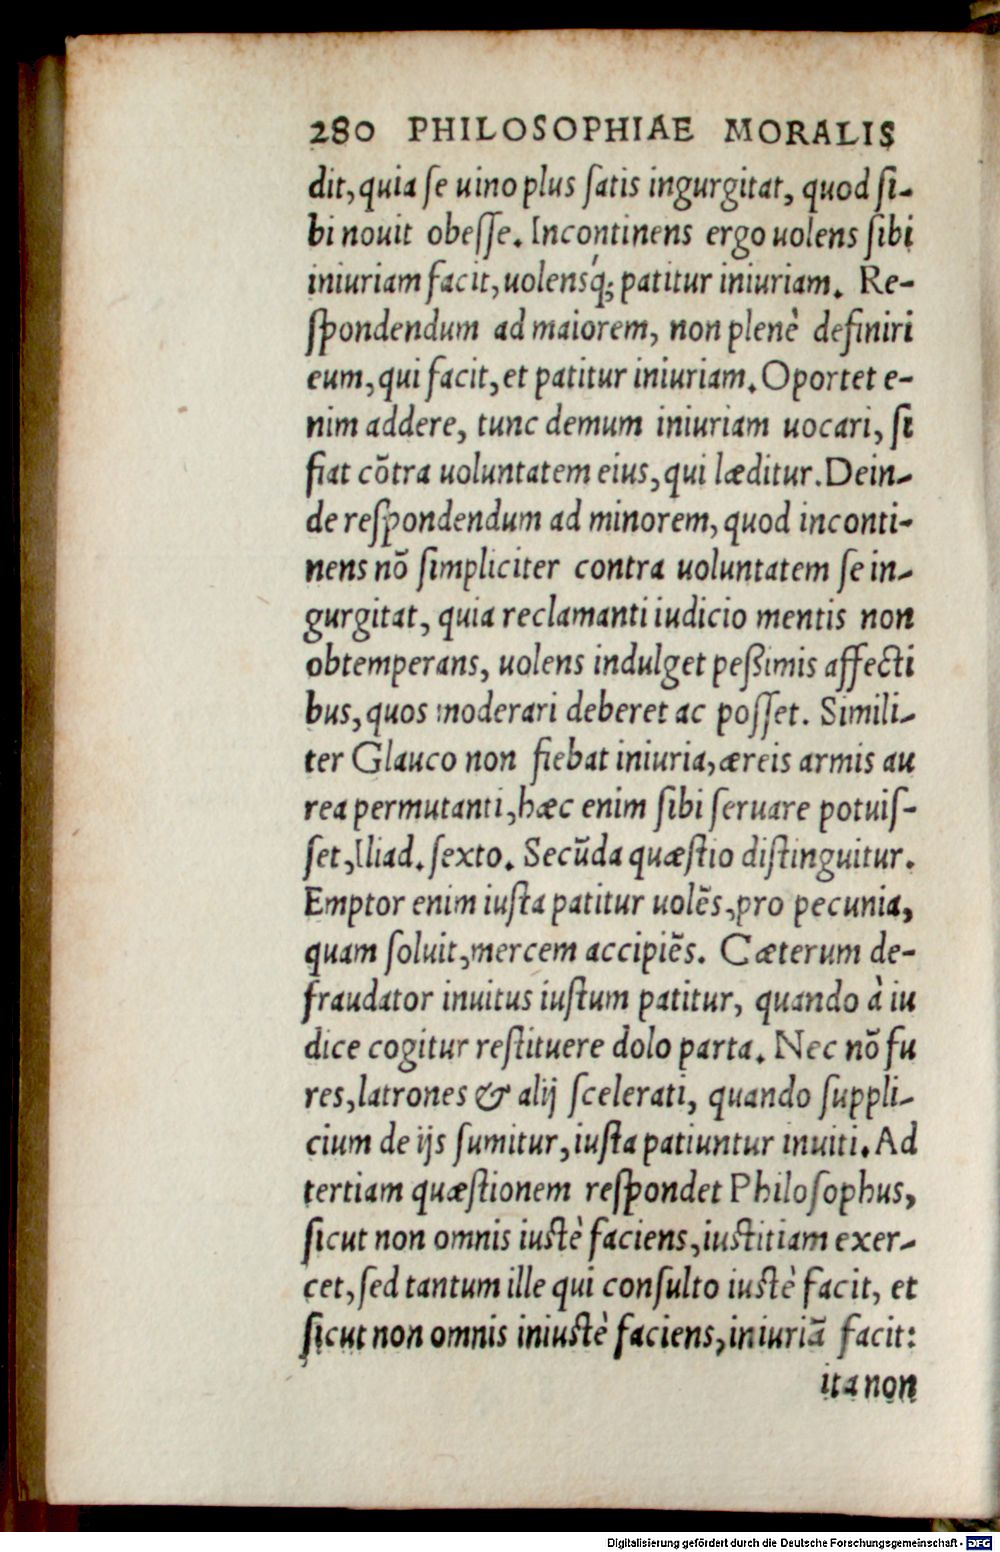 280 PHILOSOPHIAE MORALIS
dit, quia se uino plus satis ingurgitat, quod si-
bi nouit obesse. Incontinens ergo uolens sibi
iniuriam facit, uolensq́; patitur iniuriam. Re-
spondendum ad maiorem, non plenè definiri
eum, qui facit, et patitur iniuriam. Oportet e-
nim addere, tunc demum iniuriam uocari, si
fiat cōtra uoluntatem eius, qui læditur. Dein-
de respondendum ad minorem, quod inconti-
nens nō simpliciter contra uoluntatem se in-
gurgitat, quia reclamanti iudicio mentis non
obtemperans, uolens indulget peßimis affecti
bus, quos moderari deberet ac posset. Simili-
ter Glauco non fiebat iniuria, æreis armis au
rea permutanti, hæc enim sibi seruare potuis-
set, Iliad. sexto. Secūda quæstio distinguitur.
Emptor enim iusta patitur uolēs, pro pecunia,
quam soluit, mercem accipiēs. Cæterum de-
fraudator inuitus iustum patitur, quando à iu
dice cogitur restituere dolo parta. Nec nō fu
res, latrones & alij scelerati, quando suppli-
cium de ijs sumitur, iusta patiuntur inuiti. Ad
tertiam quæstionem respondet Philosophus,
sicut non omnis iustè faciens, iustitiam exer-
cet, sed tantum ille qui consulto iustè facit, et
sicut non omnis iniustè faciens, iniuriā facit:
ita non
Digitalisierung gefördert durch die Deutsche Forschungsgemeinschaft - DFG